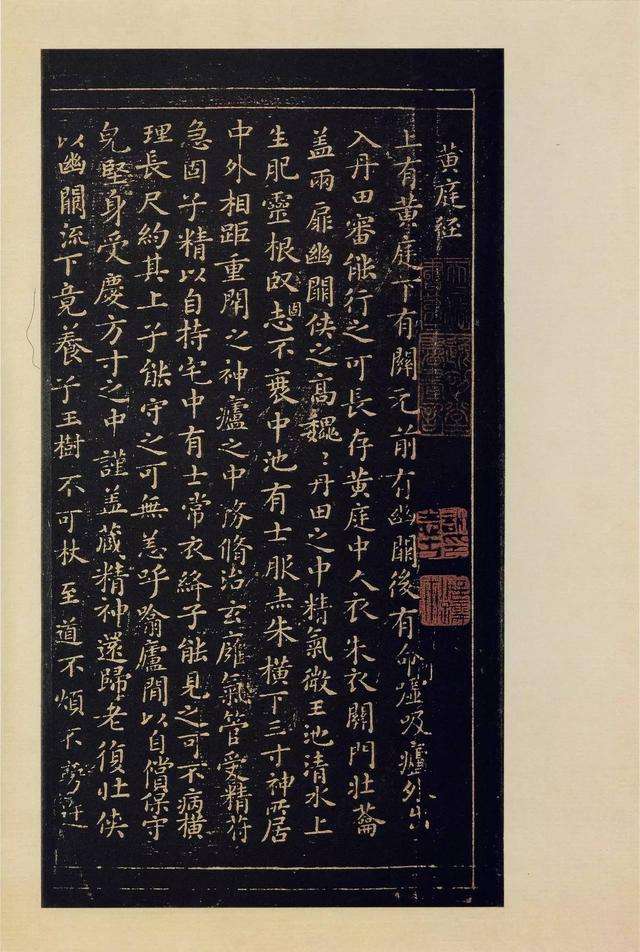 黄庭经
上有黄庭下有關元前有幽闕後有命 嘘吸廬外出
入丹田審能行之可長存黄庭中人衣朱衣關門壮蘥
盖兩扉幽闕俠之高巍〻丹田之中精氣微玉池清水上
生肥靈根堅固志不衰中池有士服赤朱横下三寸神所居
中外相距重閇之神廬之中務脩治玄廱氣管受精苻
急固子精以自持宅中有士常衣絳子能見之可不病横
理長尺約其上子能守之可無恙呼噏廬閒以自償保守
皃堅身受慶方寸之中謹盖藏精神還歸老復壮俠
以幽闕流下竟養子玉樹不可杖至道不煩不旁迕